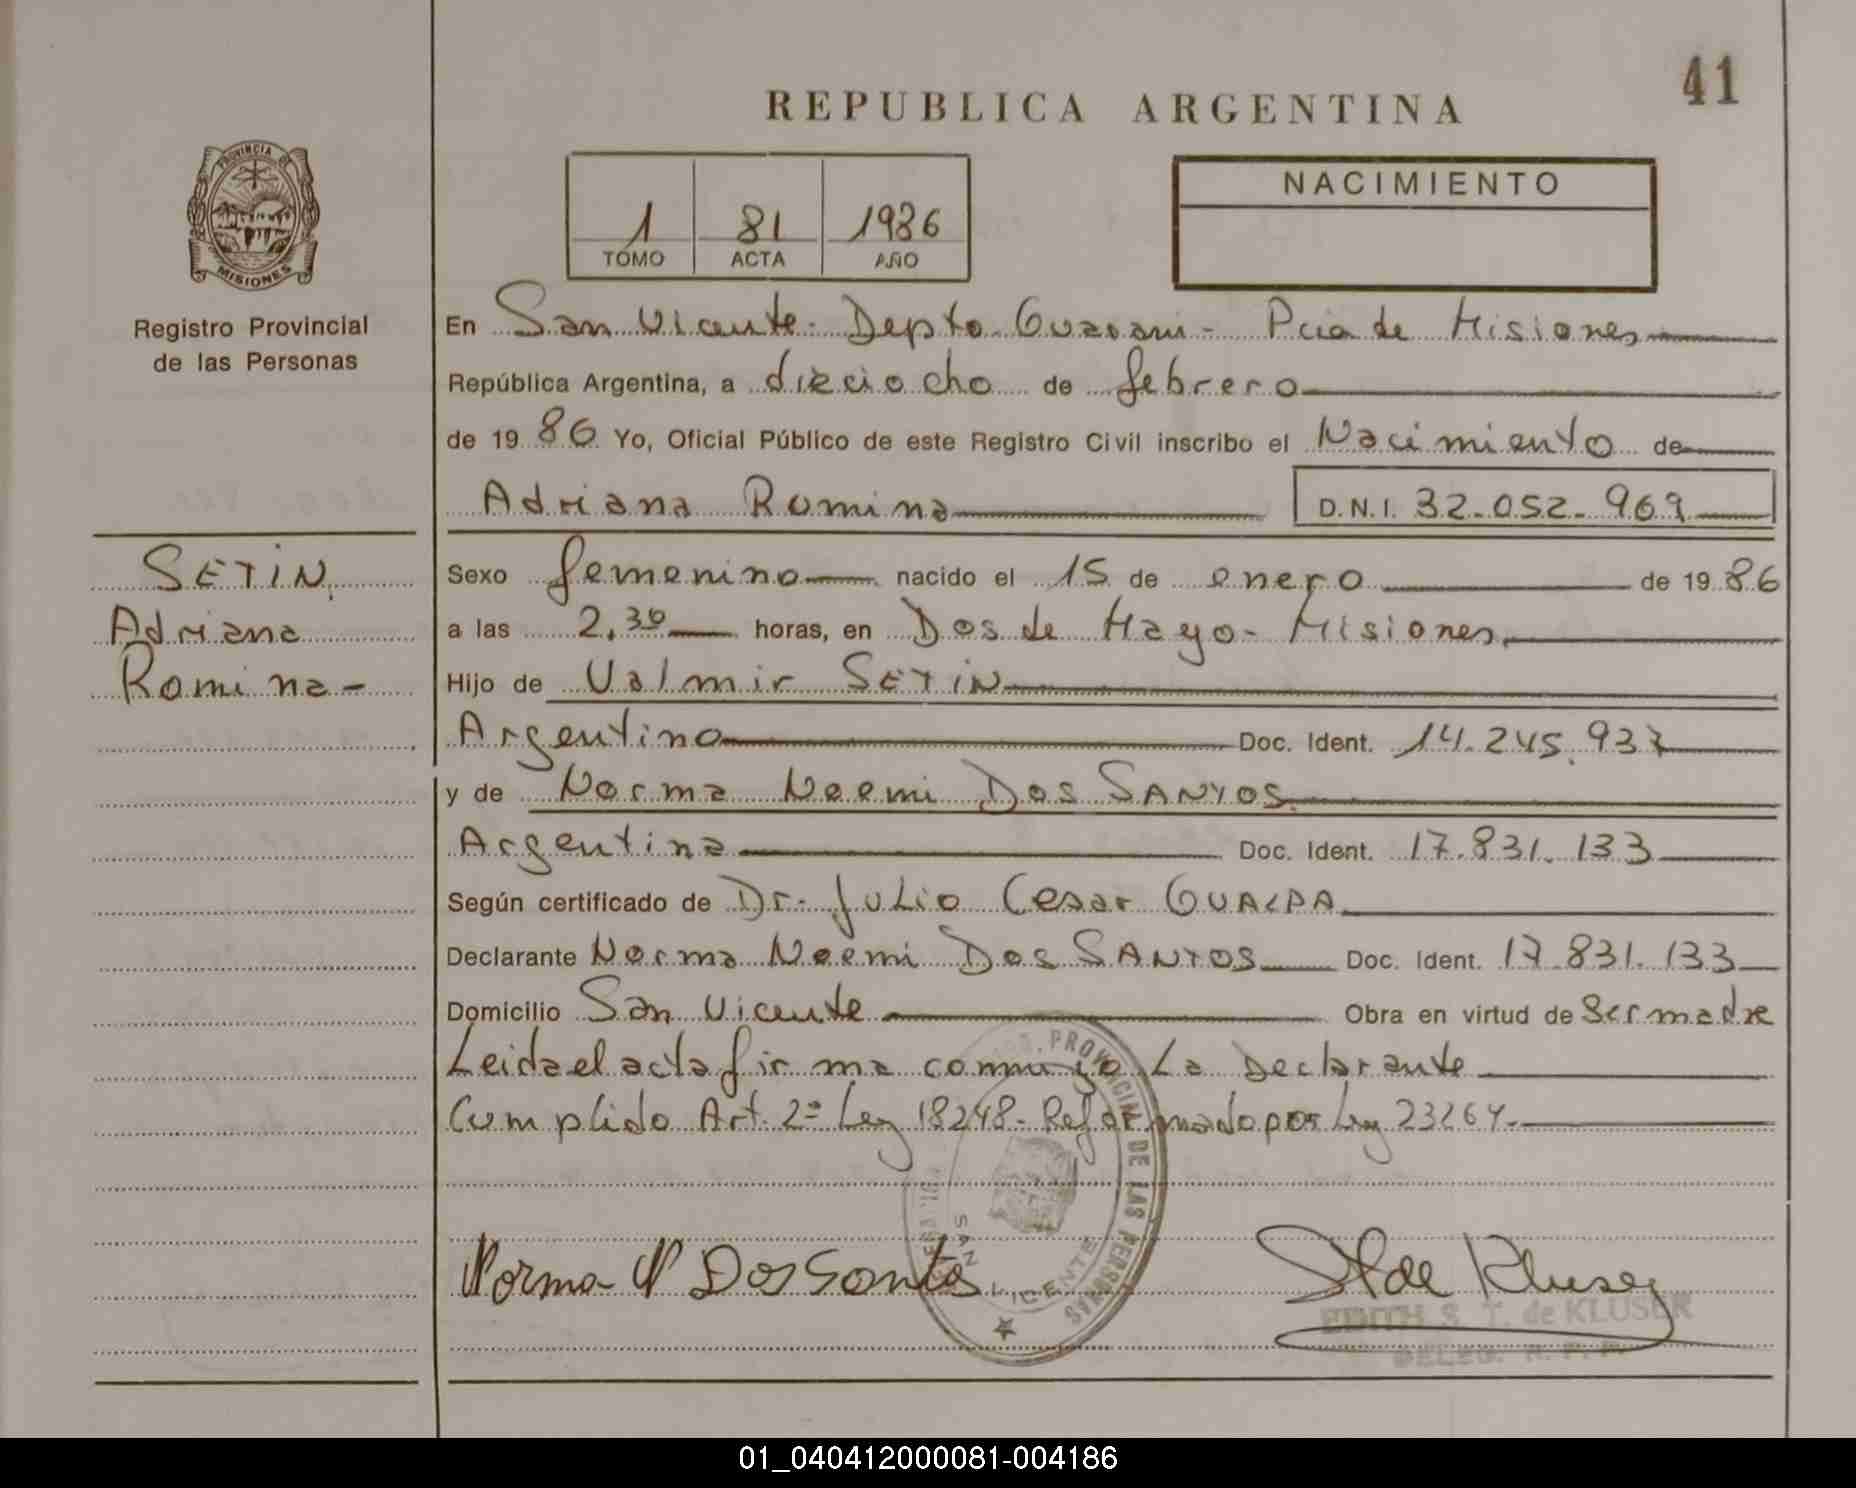 41
REPUBLICA ARGENTINA
PROVINCIA DE
MISIONES
Registro Provincial
de las Personas
1 81 1986
TOMO ACTA AÑO
NACIMIENTO
En San Vicente - Depto Guarani - Pcia de Misiones
República Argentina, a dieciocho de febrero
de 19 86 Yo, Oficial Público de este Registro Civil inscribo el Nacimiento de
Adriana Romina D.N.I. 32.052.969
SETIN
Adriana
Romina -
Sexo femenino nacido el 15 de enero de 19 86
a las 2,30 horas, en Dos de Mayo - Misiones
Hijo de Valmir SETIN
Argentino Doc. Ident. 14.245.937
y de Norma Noemi DOS SANTOS
Argentina Doc. Ident. 17.831.133
Según certificado de Dr. Julio Cesar GUALPA
Declarante Norma Noemi DOS SANTOS Doc. Ident. 17.831.133
Domicilio San Vicente Obra en virtud de Ser madre
Leida el acta firma conmigo La Declarante
Cumplido Art. 2º Ley 18248 - Reformado por Ley 23264 -
PROVINCIAL DE LAS PERSONAS
SAN VICENTE
Norma N Dos Santos
de Kluser
EDITH S. T. de KLUSER
DELEG. R. P. P.
01_040412000081-004186